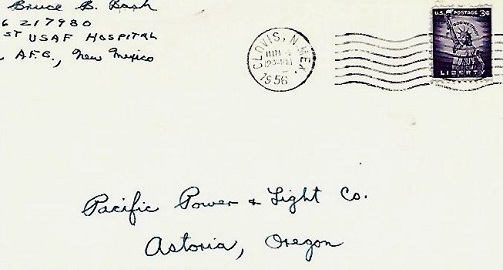 Bruce B. Bash
6 217980
ST USAF HOSPITAL
AFB., New Mexico
CLOVIS, N. MEX.
1956
U.S. POSTAGE 3¢
LIBERTY
Pacific Power & Light Co.
Astoria, Oregon